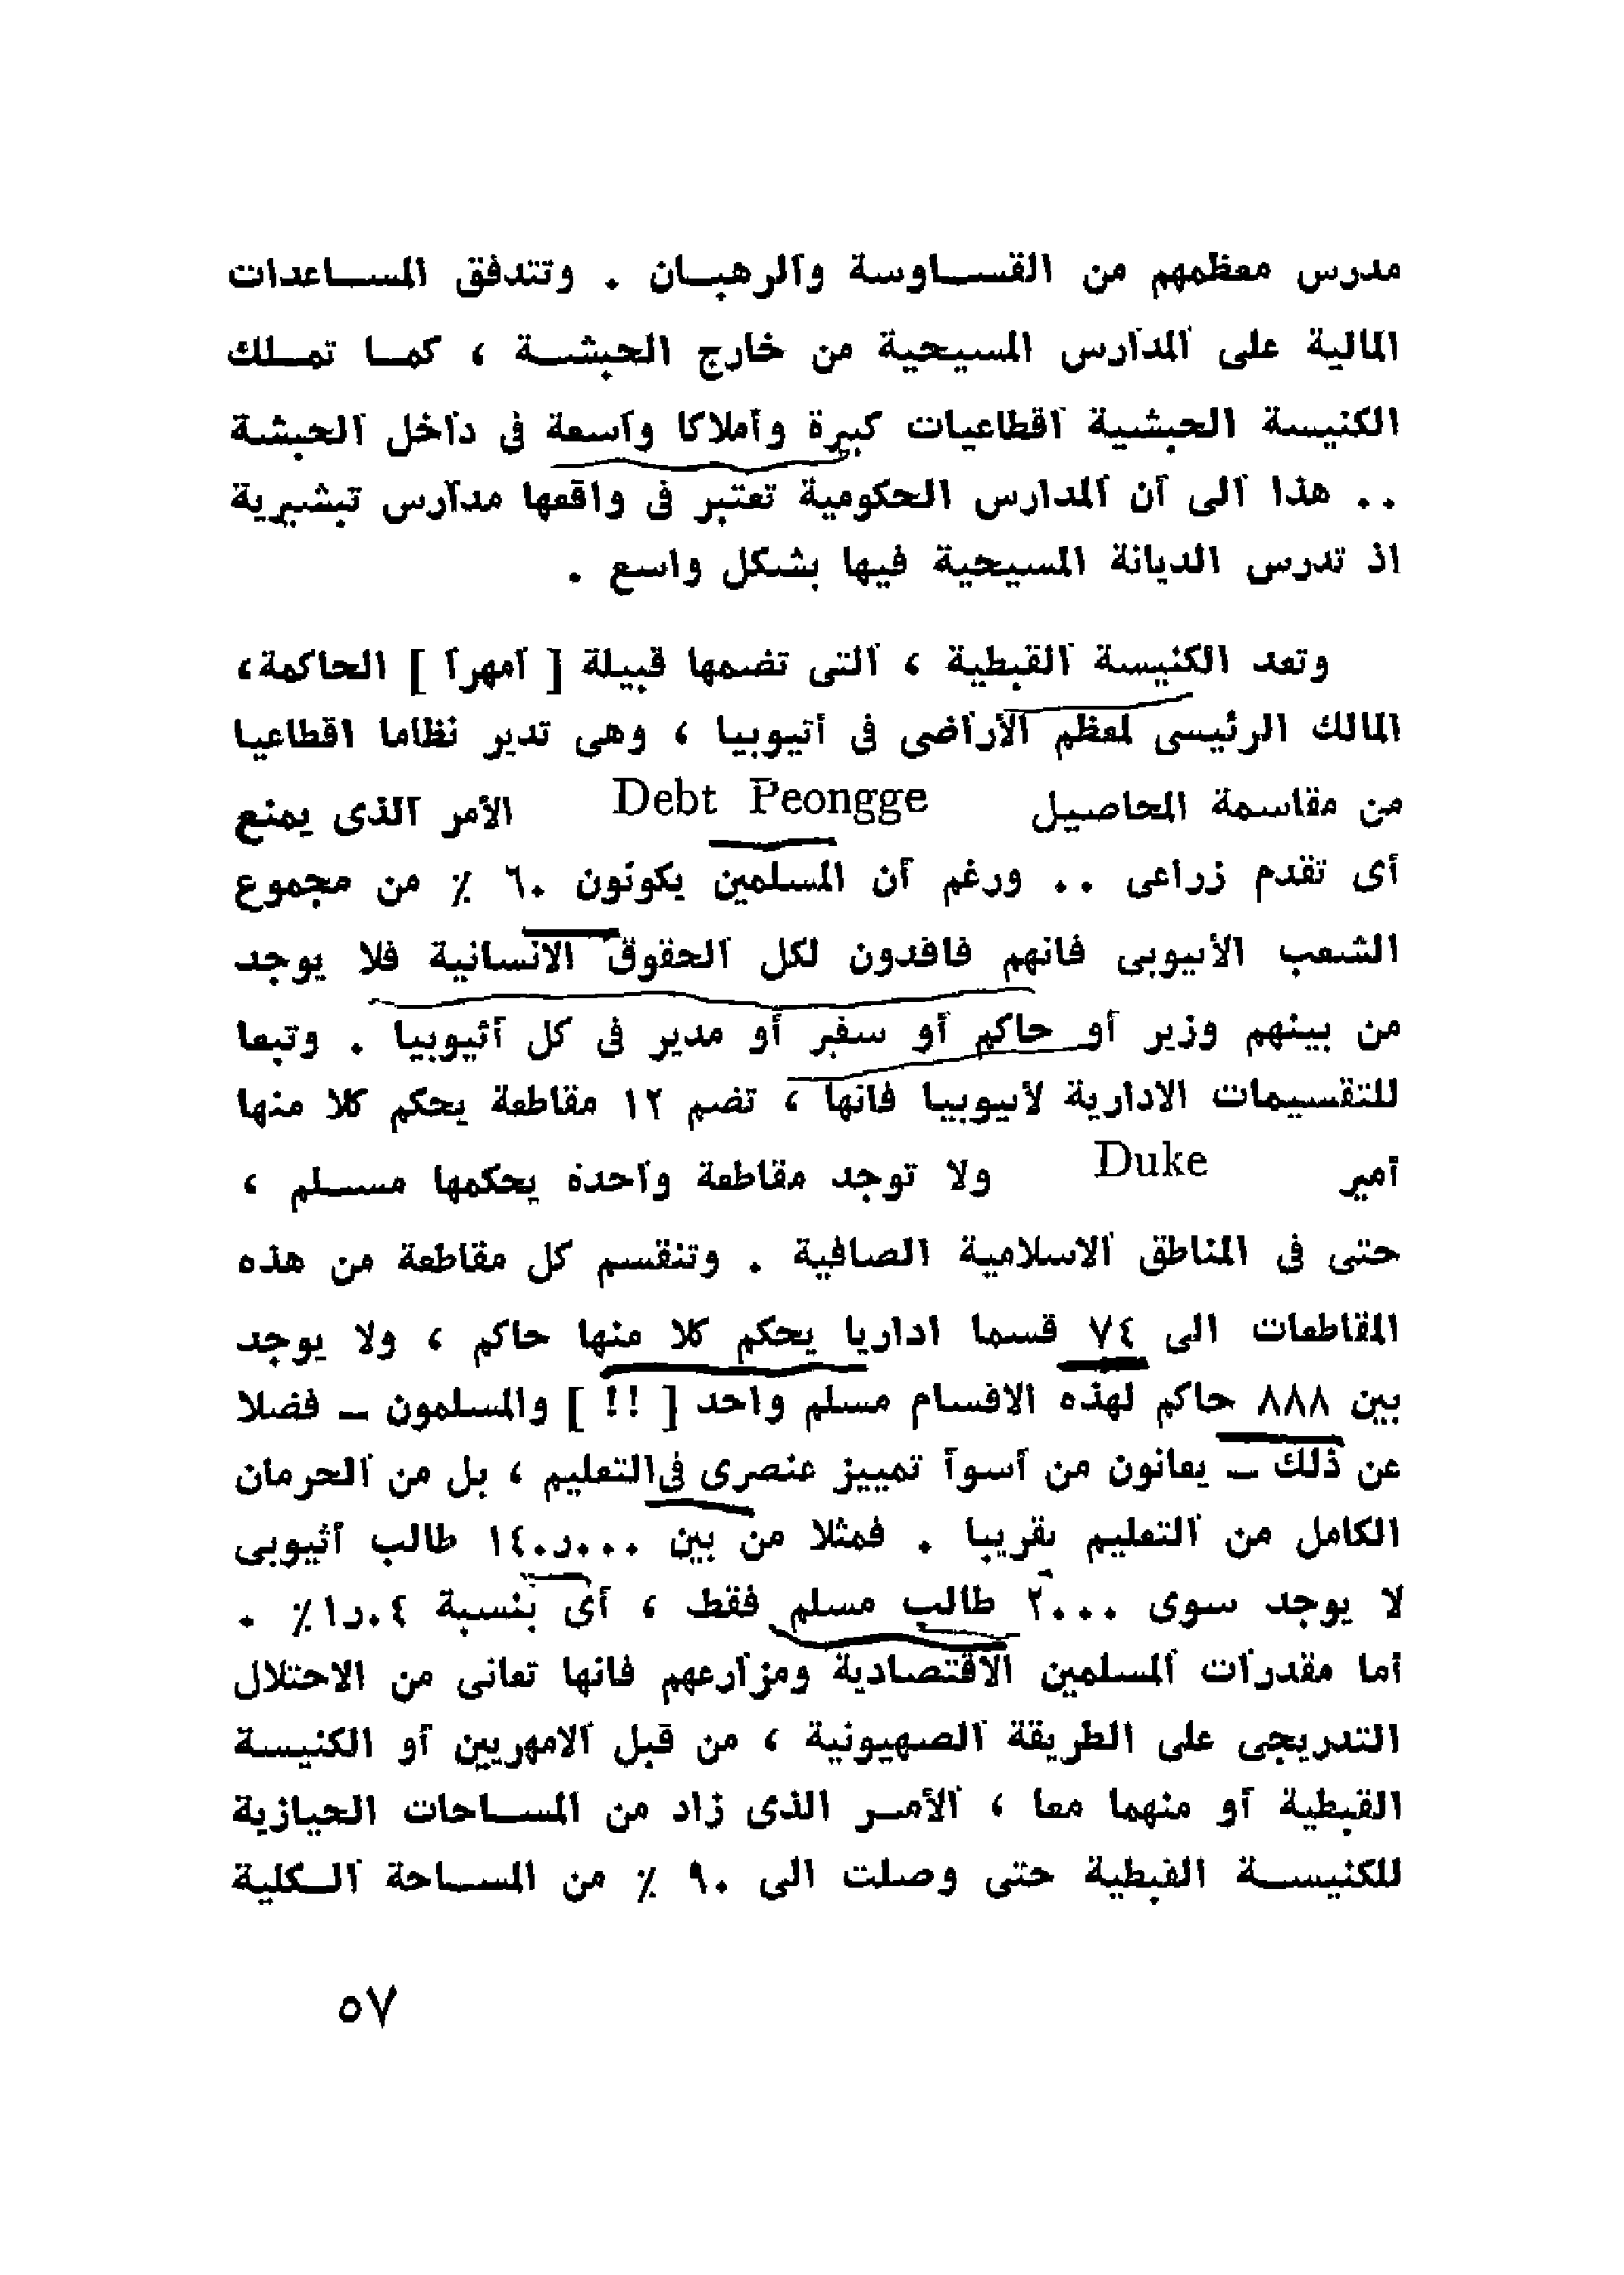 مدرس معظمهم من القساوسة والرهبان . وتتدفق المساعدات
المالية على المدارس المسيحية من خارج الحبشة ، كما تملك
الكنيسة الحبشية اقطاعيات كبيرة وأملاكا واسعة فى داخل الحبشة
.. هذا الى أن المدارس الحكومية تعتبر فى واقعها مدارس تبشيرية
اذ تدرس الديانة المسيحية فيها بشكل واسع .
وتعد الكنيسة القبطية ، التى تضمها قبيلة [ أمهرا ] الحاكمة،
المالك الرئيسى لمعظم الأراضى فى أتيوبيا ، وهى تدير نظاما اقطاعيا
من مقاسمة المحاصيل Debt Peongge الأمر الذى يمنع
أى تقدم زراعى .. ورغم أن المسلمين يكونون ٦٠ ٪ من مجموع
الشعب الأثيوبى فانهم فاقدون لكل الحقوق الانسانية فلا يوجد
من بينهم وزير أو حاكم أو سفير أو مدير فى كل أثيوبيا . وتبعا
للتقسيمات الادارية لأثيوبيا فانها ، تضم ١٢ مقاطعة يحكم كلا منها
أمير Duke ولا توجد مقاطعة واحدة يحكمها مسلم ،
حتى فى المناطق الاسلامية الصافية . وتنقسم كل مقاطعة من هذه
المقاطعات الى ٧٤ قسما اداريا يحكم كلا منها حاكم ، ولا يوجد
بين ٨٨٨ حاكم لهذه الاقسام مسلم واحد [ !! ] والمسلمون ــ فضلا
عن ذلك ــ يعانون من أسوأ تمييز عنصرى فى التعليم ، بل من الحرمان
الكامل من التعليم تقريبا . فمثلا من بين ١٤٠ر٠٠٠ طالب أثيوبى
لا يوجد سوى ٢٠٠٠ طالب مسلم فقط ، أى بنسبة ١ر٠٤٪ .
أما مقدرات المسلمين الاقتصادية ومزارعهم فانها تعانى من الاحتلال
التدريجى على الطريقة الصهيونية ، من قبل الامهريين أو الكنيسة
القبطية أو منهما معا ، الأمر الذى زاد من المساحات الحيازية
للكنيسة القبطية حتى وصلت الى ٩٠ ٪ من المساحة الكلية
٥٧